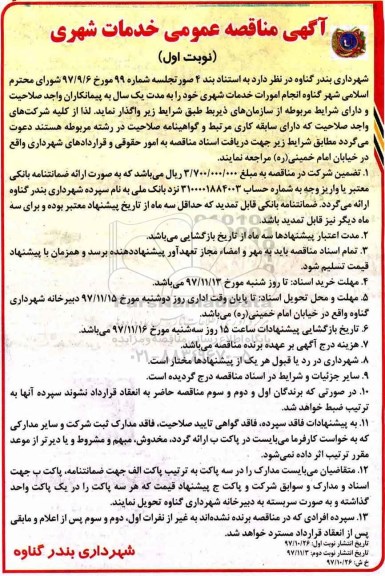 آگهی مناقصه عمومی خدمات شهری
(نوبت اول)
شهرداری بندر گناوه در نظر دارد به استناد بند ۴ صورتجلسه شماره ۹۹ مورخ ۹۷/۹/۶ شورای محترم
اسلامی شهر گناوه انجام امورات خدمات شهری خود را به مدت یک سال به پیمانکاران واجد صلاحیت
و دارای شرایط مربوطه از سازمان‌های ذیربط طبق شرایط زیر واگذار نماید. لذا از کلیه شرکت‌های
واجد صلاحیت که دارای سابقه کاری مرتبط و گواهینامه صلاحیت در رشته مربوطه هستند دعوت
می‌گردد مطابق شرایط زیر جهت دریافت اسناد مناقصه به امور حقوقی و قراردادهای شهرداری واقع
در خیابان امام خمینی(ره) مراجعه نمایند.
۱. تضمین شرکت در مناقصه به مبلغ ۳/۷۰۰/۰۰۰/۰۰۰ ریال می‌باشد که به صورت ارائه ضمانتنامه بانکی
معتبر یا واریز وجه به شماره حساب ۳۱۰۰۰۰۱۸۸۴۰۰۳ نزد بانک ملی به نام سپرده شهرداری بندر گناوه
ارائه می‌گردد. ضمانتنامه بانکی قابل تمدید که حداقل سه ماه از تاریخ پیشنهاد معتبر بوده و برای سه
ماه دیگر نیز قابل تمدید باشد.
۲. مدت اعتبار پیشنهادها سه ماه از تاریخ بازگشایی می‌باشد.
۳. تمام اسناد مناقصه باید به مهر و امضاء مجاز تعهدآور پیشنهاددهنده برسد و همزمان با پیشنهاد
قیمت تسلیم شود.
۴. مهلت خرید اسناد: تا روز شنبه مورخ ۹۷/۱۱/۱۳ می‌باشد.
۵. مهلت و محل تحویل اسناد: تا پایان وقت اداری روز دوشنبه مورخ ۹۷/۱۱/۱۵ دبیرخانه شهرداری
گناوه واقع در خیابان امام خمینی(ره) می‌باشد.
۶. تاریخ بازگشایی پیشنهادات ساعت ۱۵ روز سه‌شنبه مورخ ۹۷/۱۱/۱۶ می‌باشد.
۷. هزینه درج آگهی بر عهده برنده مناقصه می‌باشد.
۸. شهرداری در رد یا قبول هر یک از پیشنهادها مختار است.
۹. سایر جزئیات و شرایط در اسناد مناقصه درج گردیده است.
۱۰. در صورتی که برندگان اول و دوم و سوم مناقصه حاضر به انعقاد قرارداد نشوند سپرده آنها به
ترتیب ضبط خواهد شد.
۱۱. به پیشنهادات فاقد سپرده، فاقد گواهی تایید صلاحیت، فاقد مدارک ثبت شرکت و سایر مدارکی
که به خواست کارفرما می‌بایست در پاکت ب ارائه گردد، مخدوش، مبهم و مشروط و یا دیرتر از موعد
مقرر ترتیب اثر داده نمی‌شود.
۱۲. متقاضیان می‌بایست مدارک را در سه پاکت به ترتیب پاکت الف جهت ضمانتنامه، پاکت ب جهت
اسناد و مدارک و سوابق شرکت و پاکت ج پیشنهاد قیمت که هر سه پاکت را در یک پاکت واحد
گذاشته و به صورت سربسته به دبیرخانه شهرداری گناوه تحویل نمایند.
۱۳. سپرده افرادی که در مناقصه برنده نشده‌اند به غیر از نفرات اول، دوم و سوم پس از اعلام و مابقی
پس از انعقاد قرارداد مسترد خواهد شد.
تاریخ انتشار نوبت اول: ۹۷/۱۰/۲۶
تاریخ انتشار نوبت دوم: ۹۷/۱۱/۳
خ ش: ۹۷/۱۰/۲۶
شهرداری بندر گناوه